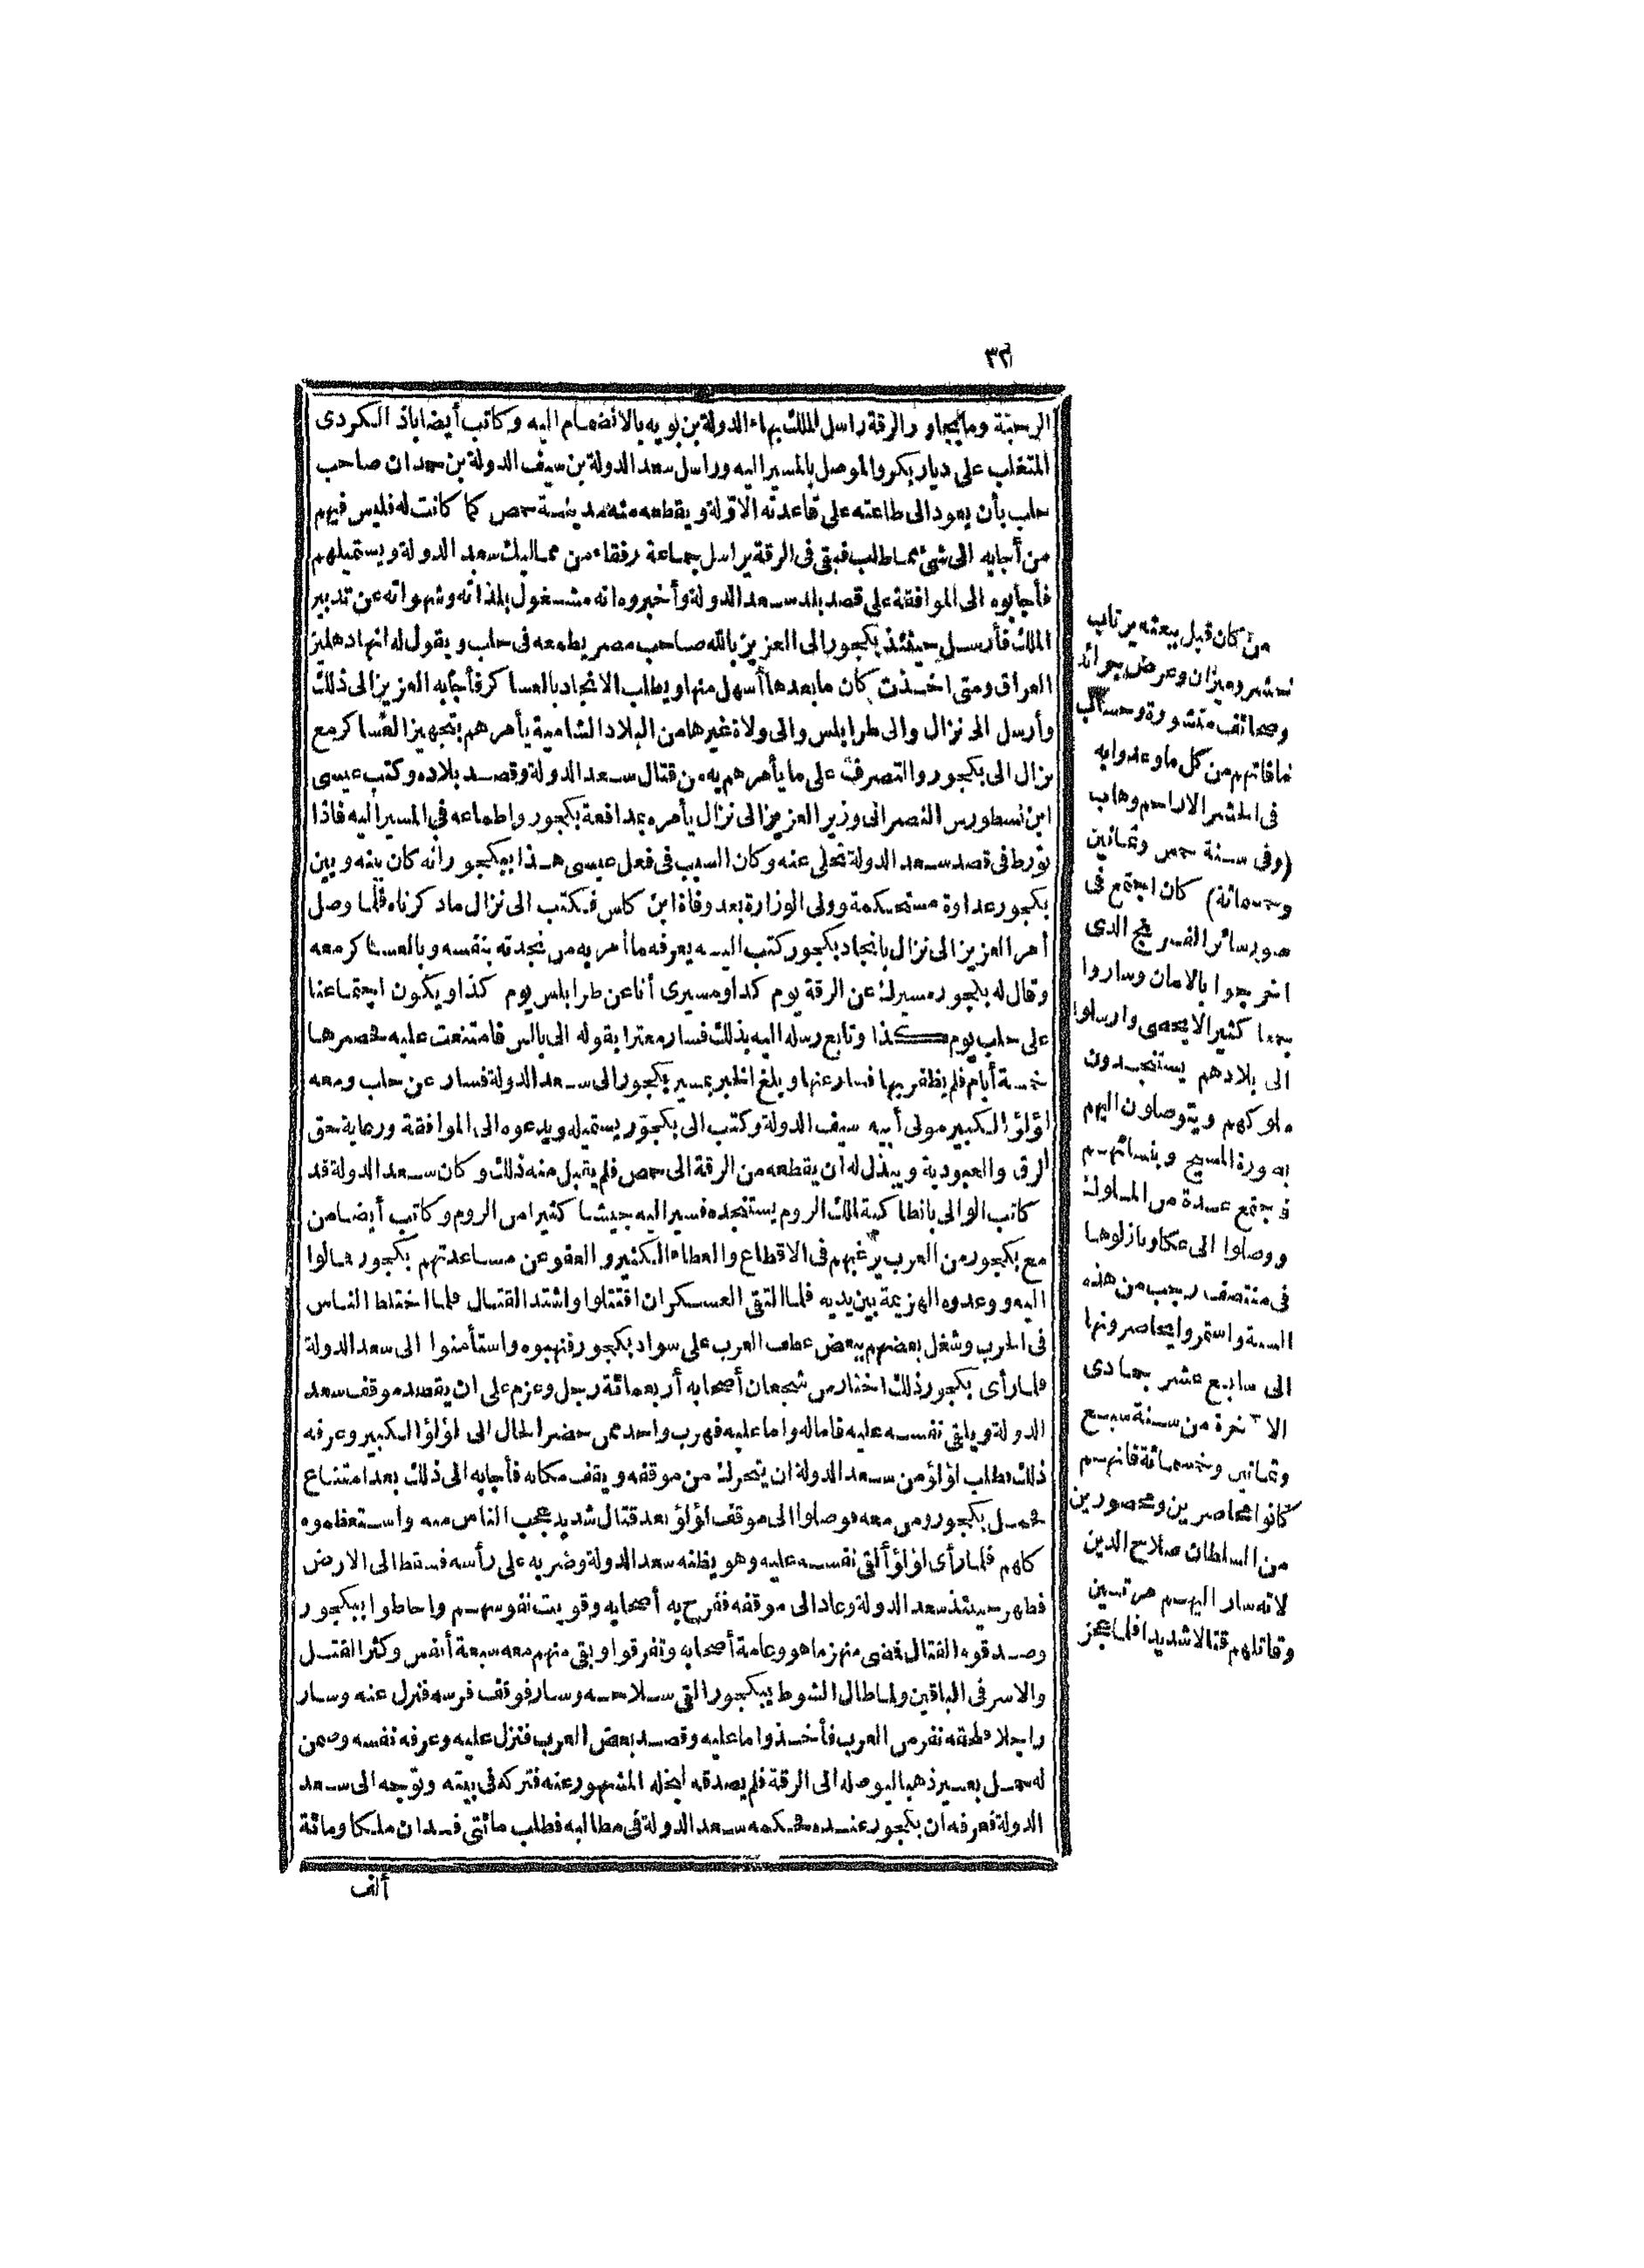 ٣٢
الرحبة وما يجاور الرقة راسل الملك بهاء الدولة بن بويه بالانضمام اليه وكاتب أيضا باذ الكردى
المتغلب على ديار بكر والموصل بالمسير اليه وراسل سعد الدولة بن سيف الدولة بن حمدان صاحب
حلب بأن يعود الى طاعته على قاعدته الاولة ويقطعه منه مدينة حمص كما كانت له فليس فيهم
من أجابه الى شئ مما طلب فبقى فى الرقة يراسل جماعة رفقاء من مماليك سعد الدولة ويستميلهم
فأجابوه الى الموافقة على قصد بلد سعد الدولة وأخبروه انه مشغول بلذاته وشهواته عن تدبير
الملك فأرسل حينئذ بكجور الى العزيز بالله صاحب مصر يطمعه فى حلب ويقول له انها دهليز
العراق ومتى اخذت كان ما بعدها أسهل منها ويطلب الانجاد بالعساكر فأجابه العزيز الى ذلك
وأرسل الى نزال والى طرابلس والى ولاة غيرها من البلاد الشامية يأمرهم بتجهيز العساكر مع
نزال الى بكجور والتصرف على ما يأمرهم به من قتال سعد الدولة وقصد بلاده وكتب عيسى
ابن نسطورس النصرانى وزير العزيز الى نزال يأمره بمدافعة بكجور واطماعه فى المسير اليه فاذا
تورط فى قصد سعد الدولة تخلى عنه وكان السبب فى فعل عيسى هذا ببكجور انه كان بينه وبين
بكجور عداوة مستحكمة وولى الوزارة بعد وفاة ابن كلس فكتب الى نزال ماذكرناه فلما وصل
أمر العزيز الى نزال بانجاد بكجور كتب اليه يعرفه ما أمر به من نجدته بنفسه وبالعساكر معه
وقال له بكجور مسيرك عن الرقة يوم كذا ومسيرى أنا عن طرابلس يوم كذا ويكون اجتماعنا
على حلب يوم كذا وتابع رسله اليه بذلك فسار مغترا بقوله الى بالس فامتنعت عليه فحصرها
خمسة أيام فلم يظفر بها فسار عنها وبلغ الخبر بمسير بكجور الى سعد الدولة فسار عن حلب ومعه
لؤلؤ الكبير مولى أبيه سيف الدولة وكتب الى بكجور يستميله ويدعوه الى الموافقة ورعاية حق
الرق والعبودية ويبذل له ان يقطعه من الرقة الى حمص فلم يقبل منه ذلك وكان سعد الدولة قد
كاتب الوالى بانطاكية لملك الروم يستنجده فسير اليه جيشا كثيرا من الروم وكاتب أيضا من
مع بكجور من العرب يرغبهم فى الاقطاع والعطاء الكثير والعفو عن مساعدتهم بكجور فمالوا
اليه ووعدوه الهزيمة بين يديه فلما التقى العسكران اقتتلوا واشتد القتال فلما اختلط الناس
فى الحرب وشغل بعضهم ببعض عطف العرب على سواد بكجور فنهبوه واستأمنوا الى سعد الدولة
فلما رأى بكجور ذلك اختار من شجعان أصحابه أربعمائة رجل وعزم على ان يقصد موقف سعد
الدولة ويلقى نفسه عليه فاما له واما عليه فهرب واحد ممن حضر الحال الى لؤلؤ الكبير وعرفه
ذلك فطلب لؤلؤ من سعد الدولة ان يتحرك من موقفه ويقف مكانه فأجابه الى ذلك بعد امتناع
فحمل بكجور ومن معه فوصلوا الى موقف لؤلؤ بعد قتال شديد عجب الناس منه واستعظموه
كلهم فلما رأى لؤلؤ ألقى نفسه عليه وهو يظنه سعد الدولة وضربه على رأسه فسقط الى الارض
فظهر حينئذ سعد الدولة وعاد الى موقفه ففرح به أصحابه وقويت نفوسهم واحاطوا ببكجور
وصدقوه القتال فمضى منهزما هو وعامة أصحابه وتفرقوا وبقى منهم معه سبعة أنفس وكثر القتل
والاسر فى الباقين ولما طال الشوط ببكجور القى سلاحه وسار فوقف فرسه فنزل عنه وسار
راجلا فلحقه نفر من العرب فأخذوا ما عليه وقصد بعض العرب فنزل عليه وعرفه نفسه وضمن
له حمل بعير ذهبا ليوصله الى الرقة فلم يصدقه لبخله المشهور عنه فتركه فى بيته وتوجه الى سعد
الدولة فعرفه ان بكجور عنده فحكمه سعد الدولة فى مطالبه فطلب مائتى فدان ملكا ومائة
ألف
من كان قبل يبعثه من نائب
وصحائف منشورة وحساب
نافاتهم من كل ما وعدوا به
فى الحشر الا راحم وهاب
(وفى سنة خمس وثمانين
وخمسمائة) كان اجتمع فى
صور سائر الفرنج الذى
اخرجوا بالامان وساروا
جمعا كثيرا لا يحصى وارسلوا
الى بلادهم يستنجدون
ملوكهم ويتوصلون اليهم
بصورة المسيح وبنسائهم
فجتمع عدة من الملوك
ووصلوا الى عكا ونازلوها
فى منتصف رجب من هذه
السنة واستمروا يحاصرونها
الى سابع عشر جمادى
الآخرة من سنة سبع
وثمانين وخمسمائة فانهم
كانوا محاصرين ومحصورين
من السلطان صلاح الدين
لانه سار اليهم مرتين
وقاتلهم قتالا شديدا فلما عجز